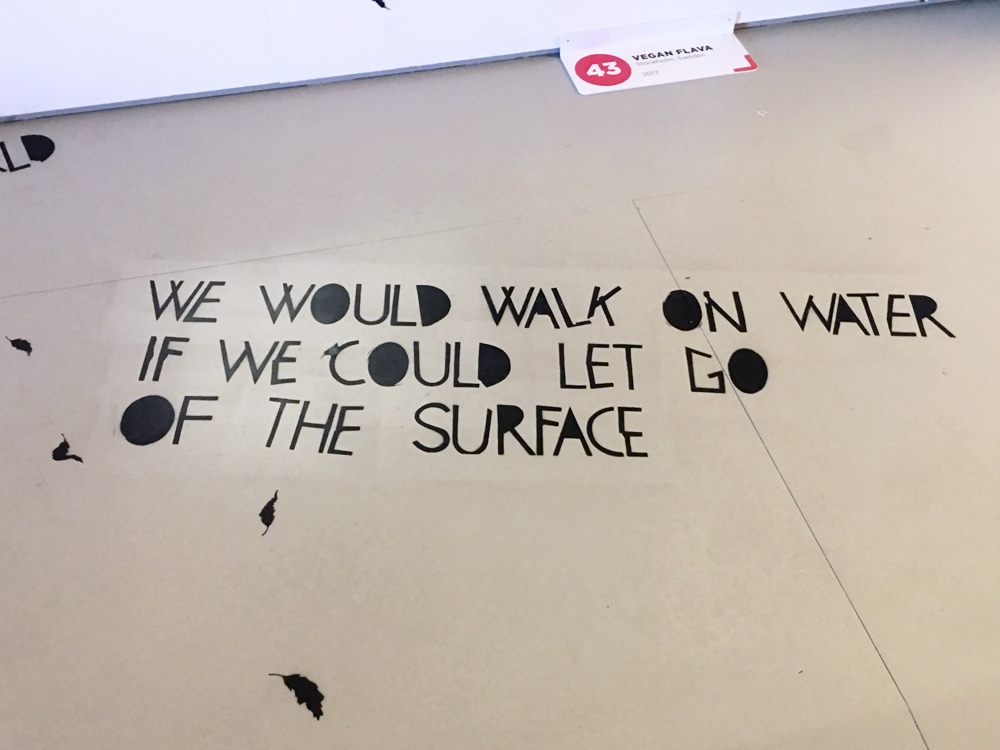 43
VEGAN FLAVA
Stockholm, Sweden
2017
LD
WE WOULD WALK ON WATER
IF WE COULD LET GO
OF THE SURFACE